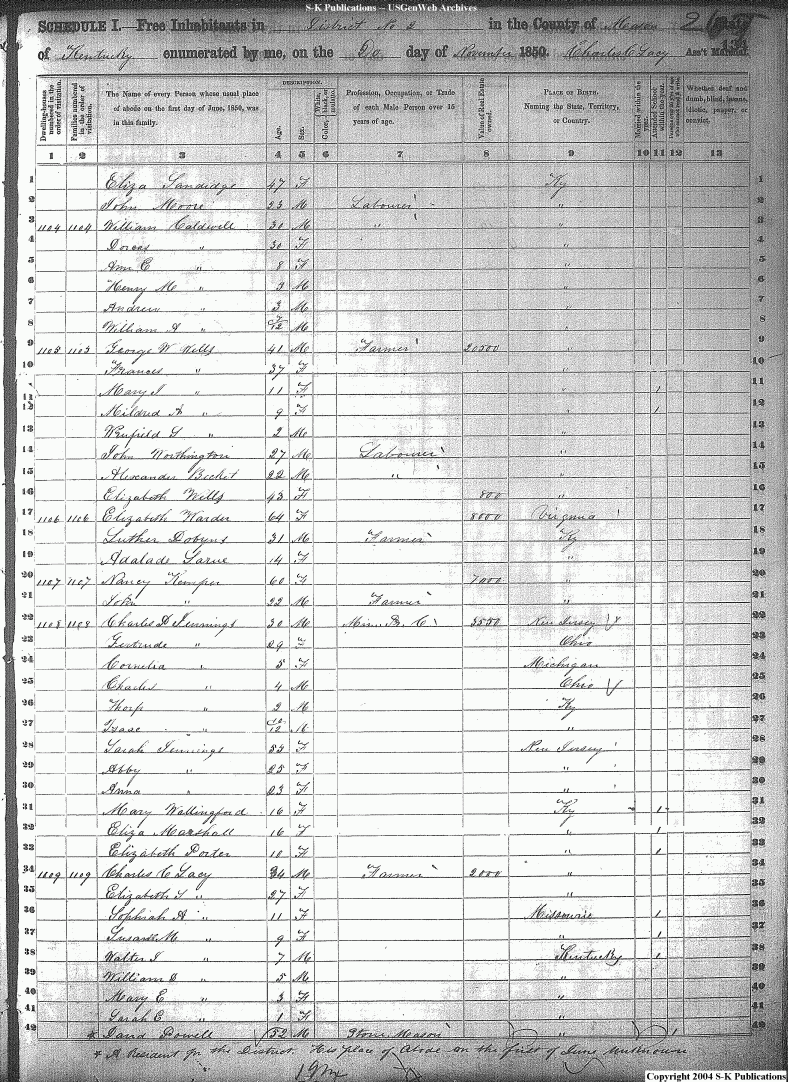 S-K Publications -- USGenWeb Archives
SCHEDULE I. Free Inhabitants in District No 2 in the County of State
of Kentucky enumerated by me, on the day of 1850. Charles C Lacy Ass't Marshal.
Dwelling-houses numbered in the order of visitation.
Families numbered in the order of visitation.
The Name of every Person whose usual place of abode on the first day of June, 1850, was in this family.
DESCRIPTION.
Age.
Sex.
Color, White, black, or mulatto.
Profession, Occupation, or Trade of each Male Person over 15 years of age.
Value of Real Estate owned.
PLACE OF BIRTH. Naming the State, Territory, or Country.
Married within the year.
Attended School within the year.
Whether deaf and dumb, blind, insane, idiotic, pauper, or convict.
1 2 3 4 5 6 7 8 9 10 11 12 13
1 Eliza Sandidge 47 F Ky 1
2 John Moore 23 M Labourer " 2
3 1104 1104 William Caldwell 30 M " " 3
4 Dorcas " 30 F " 4
5 Ann C " 8 F " 5
6 Henry M " M " 6
7 Andrew " 3 M " 7
8 William A " /12 M " 8
9 1105 1105 George W Wells 41 M Farmer 20500 " 9
10 Frances " 37 F " 10
11 Mary " 11 F " 1 11
12 Mildred A " 9 F " 1 12
13 Winfield S " 2 M " 13
14 John Worthington 27 M Labourer " 14
15 Alexander Becket 22 M " " 15
16 Elizabeth Wells 43 F 800 " 16
17 1106 1106 Elizabeth 64 F 8000 Virginia 17
18 Luther Dobyns 31 M Farmer Ky 18
19 Adalade Larue 14 F " 19
20 1107 1107 Nancy Kemper 60 F 7000 " 20
21 John " 22 M Farmer " 21
22 1108 1108 Charles Jennings 30 M 3550 New Jersey 22
23 Gertrude " 29 F Ohio 23
24 Cornelia " 5 F Michigan 24
25 Charles " 4 M Ohio 25
26 Thorp " 2 M Ky 26
27 Isaac " /12 M " 27
28 Sarah Jennings F New Jersey 28
29 Abby " 25 F " 29
30 Anna " 23 F " 30
31 Mary Wallingford 16 F Ky 1 31
32 Eliza Marshall 16 F " 1 32
33 Elizabeth Porter 10 F " 1 33
34 1109 1109 Charles C Lacy 34 M Farmer 2000 " 34
35 Elizabeth " 27 F " 35
36 Sophiah A " 11 F Missourie 1 36
37 Susan M " 9 F " 1 37
38 Walter " 7 M Kentucky 1 38
39 William " 5 M " 39
40 Mary E " 3 F " 40
41 Sarah E " 1 F " 41
42 * David Powell 52 M Stone Mason " 1 42
* A Resident in the District. His place of Abode on the first of June unknown
Copyright 2004 S-K Publications